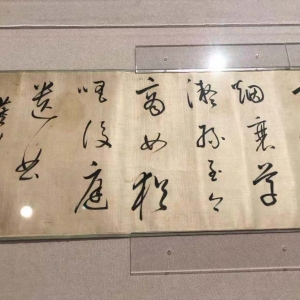 烟衰草
凝綠至今
商女猶
唱後庭
遺曲